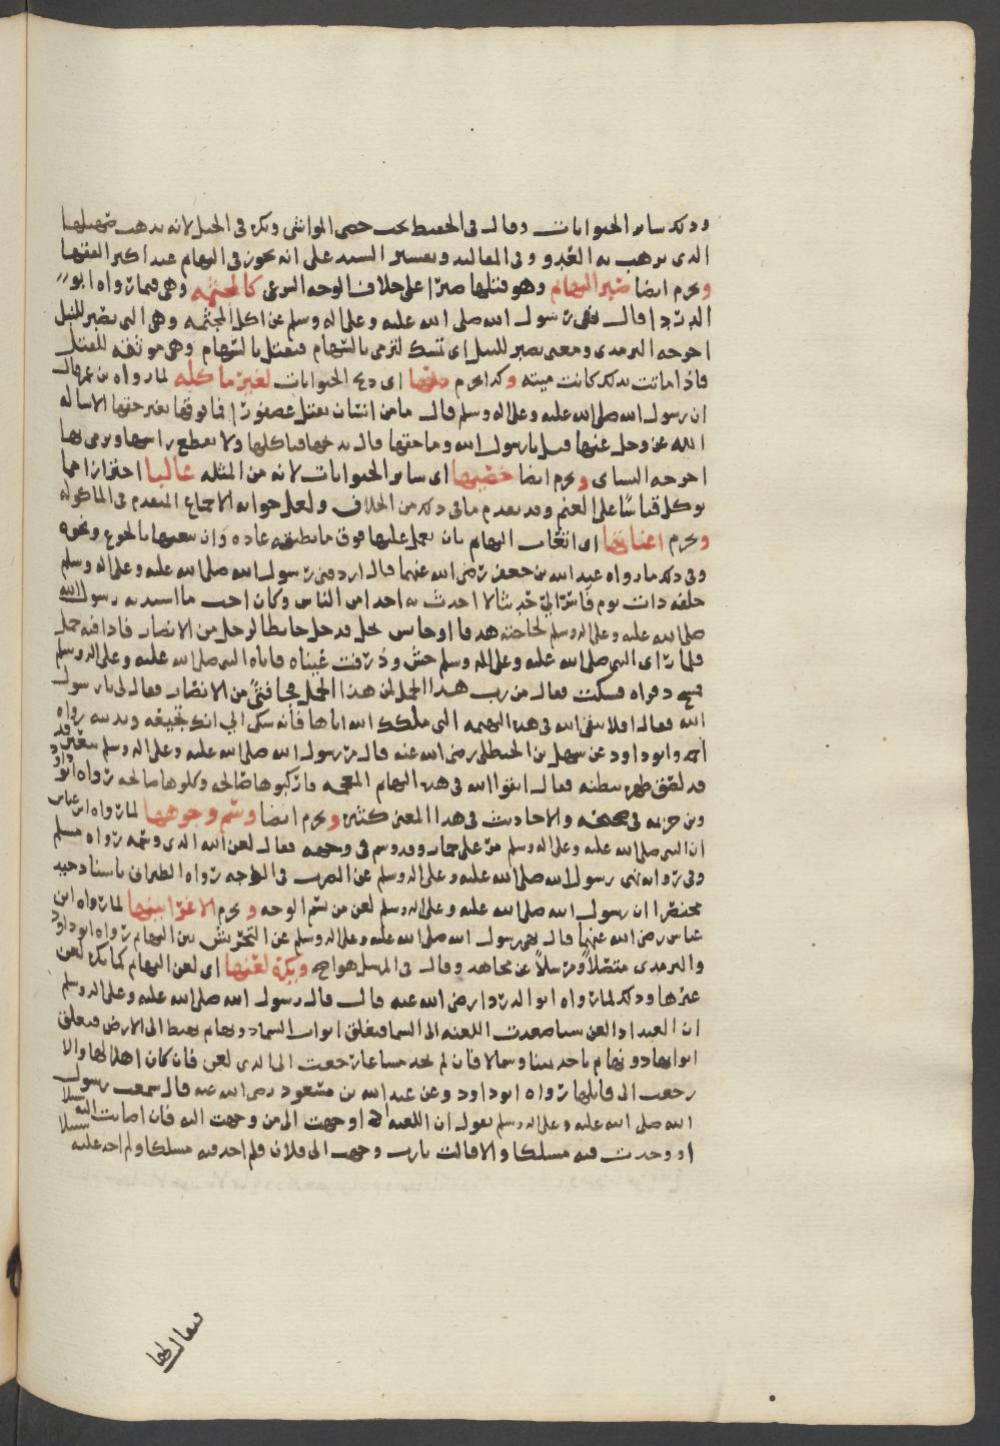 وذلك سائر الحيوانات وقال في الحفيظ يجب خصي المواشي ويكره في الخيل لانه يذهب صهيلها
الذي يرهب به العدو وفي المقاليد وتفسير السيد على انه يجوز في البهائم عند اكثر الفقها
ويحرم ايضا صبر البهائم وهو قتلها صبرا على خلاف الوجه الشرعي كالمجثمه وهي فيما رواه ابو
الدردا قال نهى رسول الله صلى الله عليه وعلى اله وسلم عن اكل المجثمه وهي التي تصبر للنبل
اخرجه الترمذي ومعنى تصبر للنبل اي تمسك لترمى بالسهام فتقتل بالسهام وهي موثقه للقتل
فاذا ماتت بذلك كانت ميته وكذا يحرم ذبحها اي ذبح الحيوانات لغير ماكله لما رواه بن عمر قال
ان رسول الله صلى الله عليه وعلى اله وسلم قال ما من انسان يقتل عصفورا فما فوقها بغير حقها الا ساله
الله عز وجل عنها قيل يا رسول الله وما حقها قال يذبحها فياكلها ولا يقطع راسها ويرمي بها
اخرجه النساى ويحرم ايضا خصيها اي سائر الحيوانات لانه من المثله غالبا احترازا مما
يوكل قياسا على الغنم وقد تقدم ما في ذلك من الخلاف ولعل جوابه الاجماع المتقدم في الماكوله
ويحرم اعناتها اي اتعاب البهائم بان يحمل عليها فوق ما تطيقه عاده وان يتعبها بالجوع ونحوه
وفي ذلك ما رواه عبد الله بن جعفر رضي الله عنهما قال اردفني رسول الله صلى الله عليه وعلى اله وسلم
خلفه ذات يوم فاسر الي حديثا لا احدث به احدا من الناس وكان احب ما استتر به رسول الله
صلى الله عليه وعلى اله وسلم لحاجته هدفا او حايش نخل فدخل حايطا لرجل من الانصار فاذا فيه جمل
فلما راى النبي صلى الله عليه وعلى اله وسلم حن وذرفت عيناه فاتاه النبي صلى الله عليه وعلى اله وسلم
فمسح ذفراه فسكت فقال من رب هذا الجمل لمن هذا الجمل فجا فتى من الانصار فقال لي يا رسول
الله فقال افلا تتقي الله في هذه البهيمه التي ملكك الله اياها فانه شكى الي انك تجيعه وتدئبه رواه
احمد وابو داود وعن سهل بن الحنظلي رضي الله عنه قال مر رسول الله صلى الله عليه وعلى اله وسلم ببعير قد
قد لصق ظهره ببطنه فقال اتقوا الله في هذه البهائم المعجمه فاركبوها صالحه وكلوها صالحه رواه ابو داود
وبن خزيمه في صحيحه والاحاديث في هذا المعنى كثيره ويحرم ايضا وسم وجوهها لما رواه ابن عباس
ان النبي صلى الله عليه وعلى اله وسلم مر على حمار وقد وسم في وجهه فقال لعن الله الذي وسمه رواه مسلم
وفي روايه نهى رسول الله صلى الله عليه وعلى اله وسلم عن الضرب في الوجه رواه الطبراني باسناد جيد
مختصرا ان رسول الله صلى الله عليه وعلى اله وسلم لعن من يسم الوجه ويحرم الاغرا بينها لما رواه ابن
عباس رضي الله عنهما قال نهى رسول الله صلى الله عليه وعلى اله وسلم عن التحريش بين البهائم رواه ابو داود
والترمذي متصلا ومرسلا عن مجاهد وقال في المرسل هو اصح ويكره لعنها اي لعن البهائم كما يكره لعن
غيرها وذلك لما رواه ابو الدردا رضي الله عنه قال قال رسول الله صلى الله عليه وعلى اله وسلم
ان العبد اذا لعن شيا صعدت اللعنه الى السما فيغلق ابواب السما دونها ثم تهبط الى الارض فيغلق
ابوابها دونها ثم تاخذ يمينا وشمالا فان لم تجد مساغا رجعت الى الذي لعن فان كان اهلا لها والا
رجعت الى قايلها رواه ابو داود وعن عبد الله بن مسعود رضي الله عنه قال سمعت رسول
الله صلى الله عليه وعلى اله وسلم يقول ان اللعنه اذا وجهت الى من وجهت اليه فان اصابت عليه سبيلا
او وجدت فيه مسلكا والا قالت يا رب وجهت الى فلان فلم اجد فيه مسلكا ولم اجد عليه سبيلا
فيقال لها